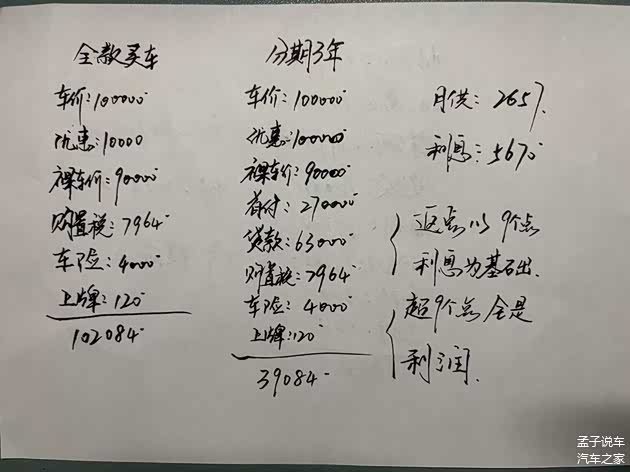 全款买车
车价:100000
优惠:10000
裸车价:90000
购置税:7964
车险:4000
上牌:120
102084
分期3年
车价:100000
优惠:10000
裸车价:90000
首付:27000
贷款:63000
购置税:7964
车险:4000
上牌:120
39084
月供:2657.
利息:5670
返点以9个点
利息为基础出.
超9个点全是
利润.
孟子说车
汽车之家